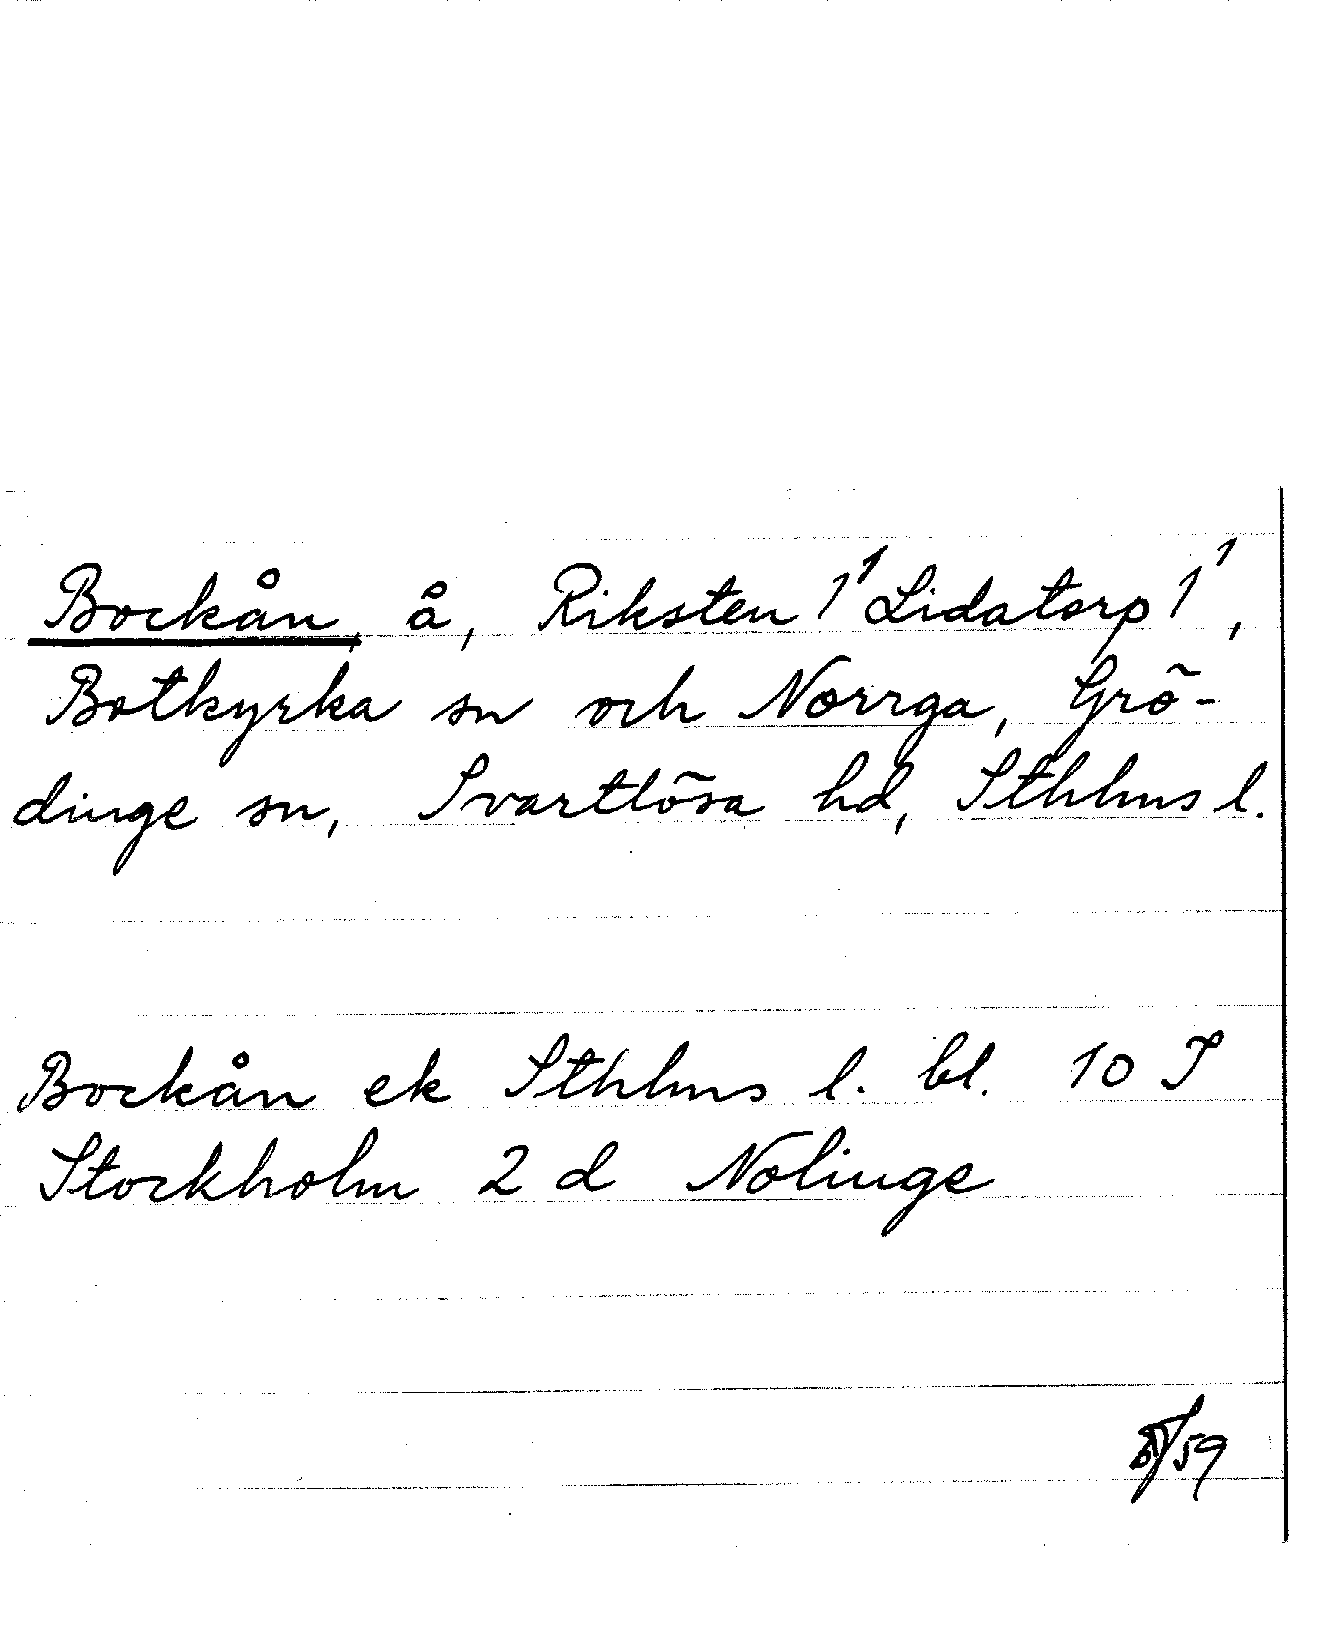 Bockån, å, Riksten 1¹ Lidatorp 1¹,
Botkyrka sn och Norrga, Grö-
dinge sn, Svartlösa hd, Sthlms l.
Bockån ek Sthlms l. bl. 10 J
Stockholm 2 d Nolinge
/59